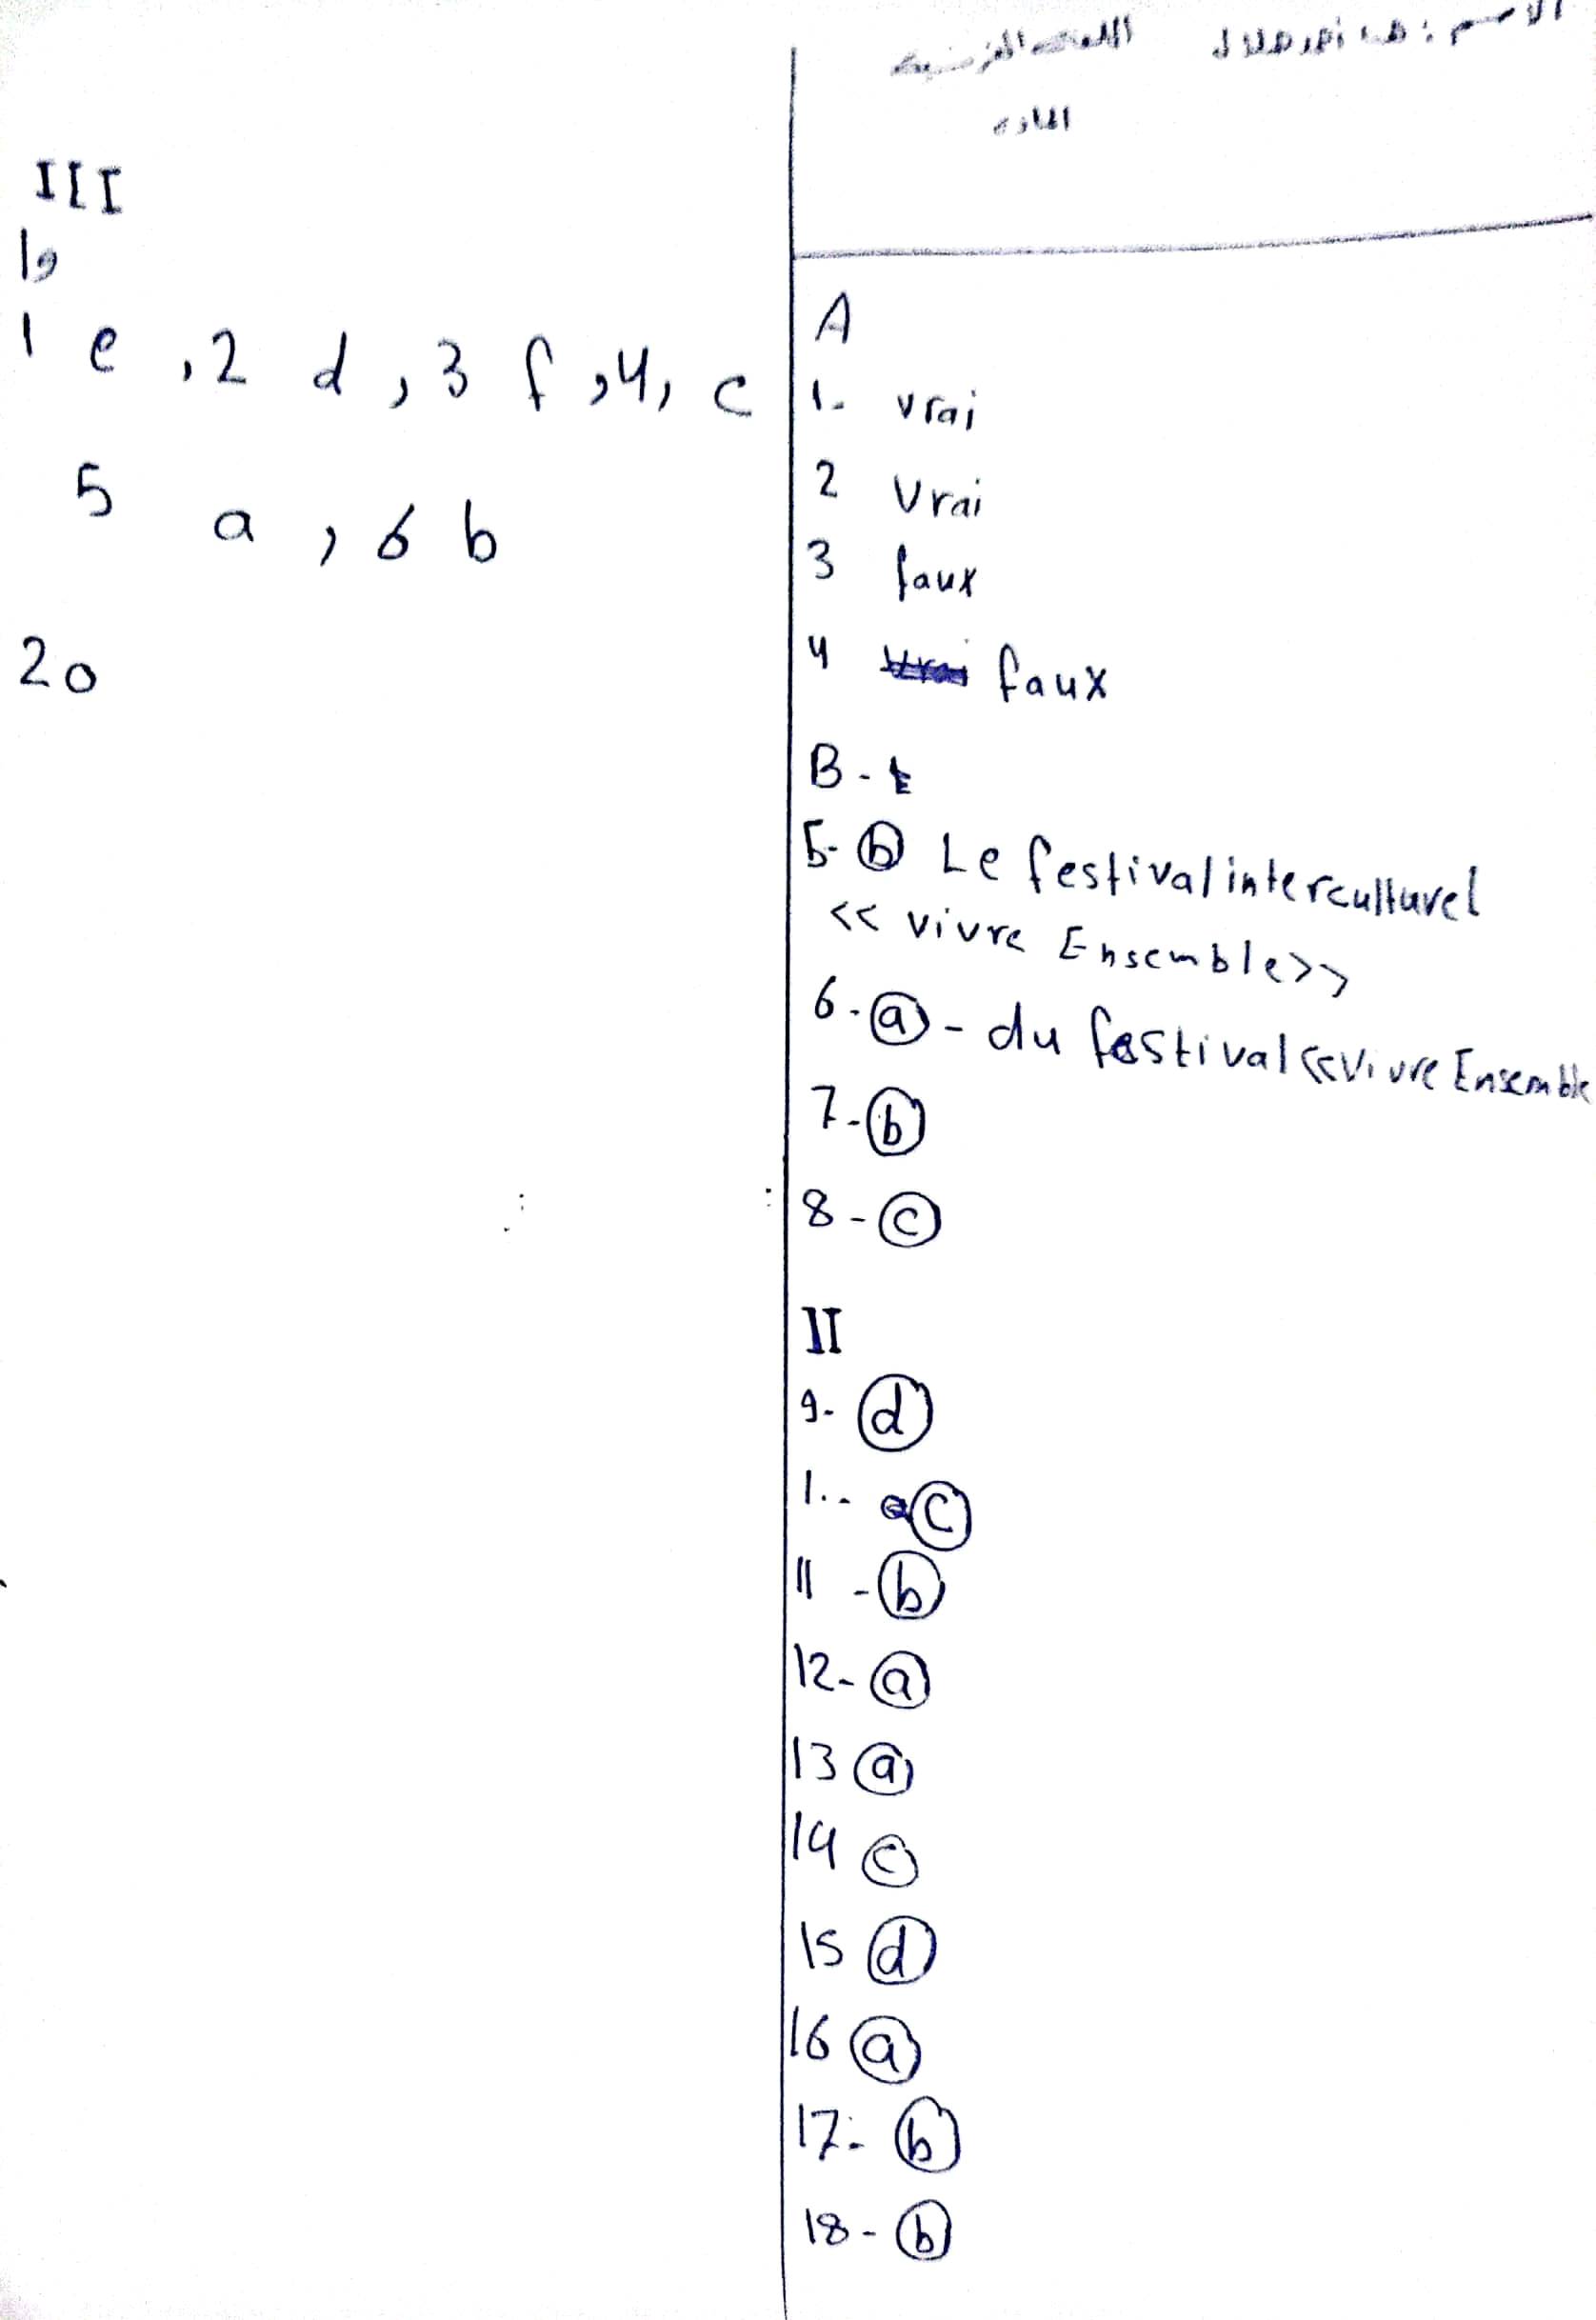 الاسم :
اللغة الفرنسية
المادة
A
1- vrai
2 Vrai
3 faux
4 faux
B-
5- b Le festival interculturel
<< vivre Ensemble>>
6-a - du festival <<Vivre Ensemble
7-b
8-c
II
9- d
1..- c
11 -b
12- a
13 a
14 c
15 d
16 a
17- b
18- b
III
19
1 e ,2 d , 3 f ,4, c
5 a , 6 b
20